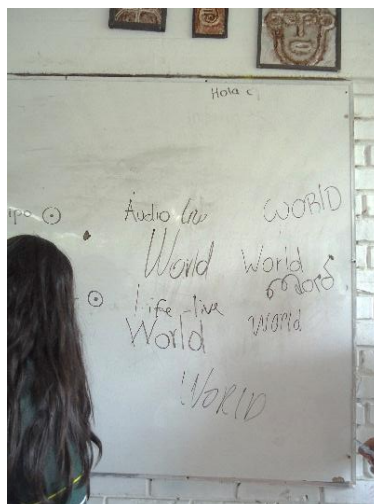 Hola c
ipo
Audio
WORLD
World World
World
Life-live
World World
WORLD